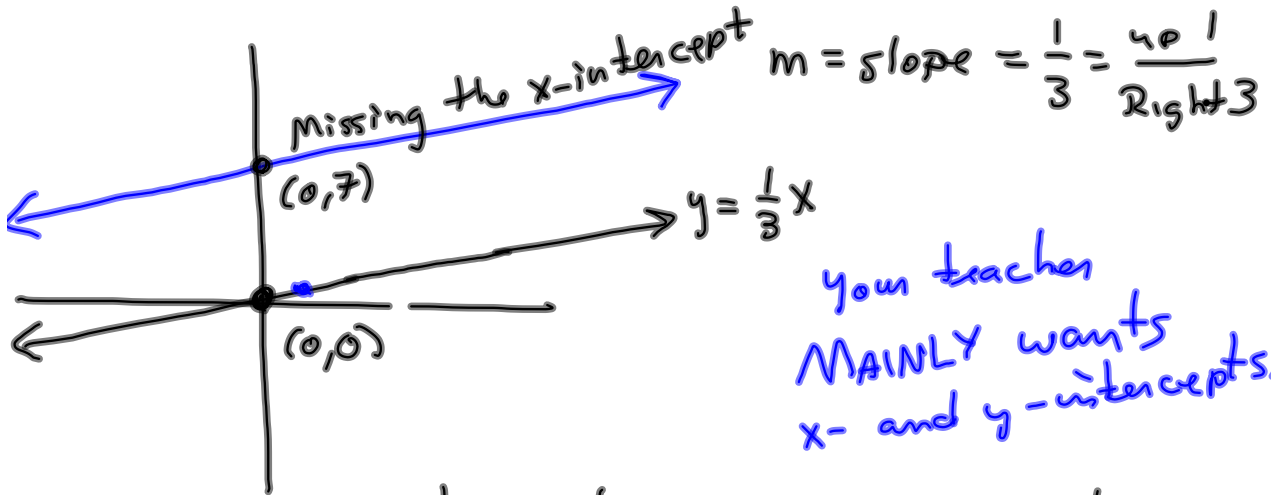 Missing the x-intercept
m = slope = 1/3 = up 1/Right 3
(0,7)
y = 1/3 x
(0,0)
your teacher
MAINLY wants
x- and y-intercepts.